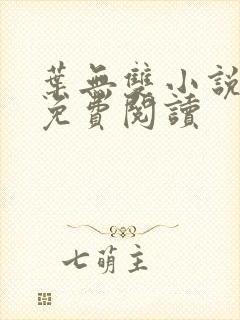 葉無雙小說
免費閱讀
七萌主